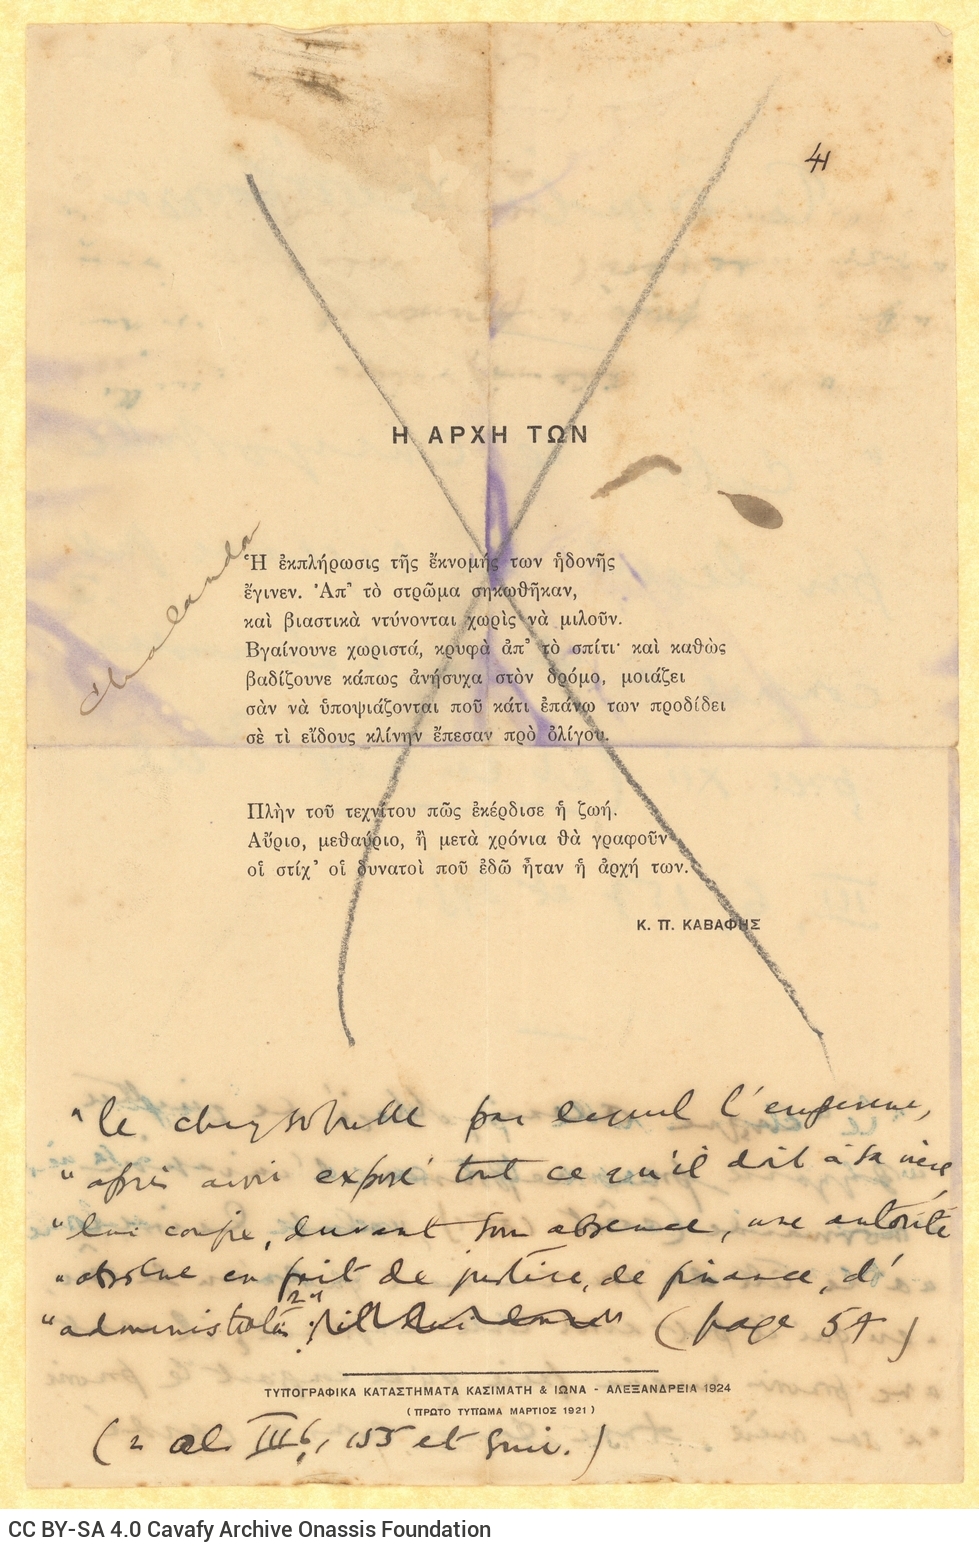 41
Η ΑΡΧΗ ΤΩΝ
Chalanda
Ἡ ἐκπλήρωσις τῆς ἔκνομής των ἡδονῆς
ἔγινεν. Ἀπ’ τὸ στρῶμα σηκωθῆκαν,
καὶ βιαστικὰ ντύνονται χωρὶς νὰ μιλοῦν.
Βγαίνουνε χωριστά, κρυφὰ ἀπ’ τὸ σπίτι· καὶ καθὼς
βαδίζουνε κάπως ἀνήσυχα στὸν δρόμο, μοιάζει
σὰν νὰ ὑποψιάζονται ποῦ κάτι ἐπάνω των προδίδει
σὲ τὶ εἴδους κλίνην ἔπεσαν πρὸ ὀλίγου.
Πλὴν τοῦ τεχνίτου πῶς ἐκέρδισε ἡ ζωή.
Αὔριο, μεθαύριο, ἢ μετὰ χρόνια θὰ γραφοῦν
οἱ στίχ’ οἱ δυνατοὶ ποῦ ἐδῶ ἦταν ἡ ἀρχή των.
Κ. Π. ΚΑΒΑΦΗΣ
"le chrysobulle par lequel l'empereur,
"après avoir exposé tout ce qu'il doit à sa mère
"lui confie, durant son absence, une autorité
"absolue en fait de justice, de finance, d'
"administratⁿ (page 54)
ΤΥΠΟΓΡΑΦΙΚΑ ΚΑΤΑΣΤΗΜΑΤΑ ΚΑΣΙΜΑΤΗ & ΙΩΝΑ - ΑΛΕΞΑΝΔΡΕΙΑ 1924
(ΠΡΩΤΟ ΤΥΠΩΜΑ ΜΑΡΤΙΟΣ 1921)
(2 al. III 6, 155 et suiv.)
CC BY-SA 4.0 Cavafy Archive Onassis Foundation